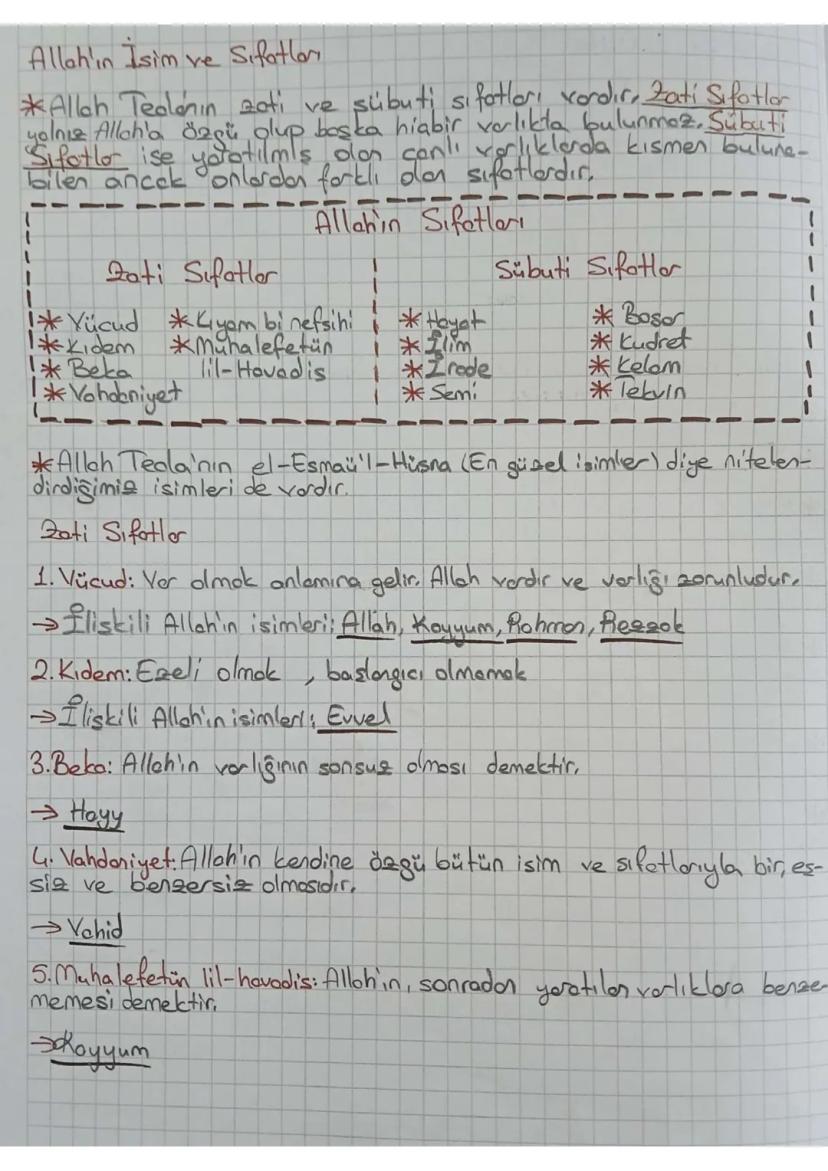 Allah'ın İsim ve Sıfatları
*Allah Teala'nın zati ve sübuti sıfatları vardır. Zati Sıfatlar
yalnız Allah'a özgü olup başka hiçbir varlıkta bulunmaz. Sübuti
Sıfatlar ise yaratılmış olan canlı varlıklarda kısmen buluna-
bilen ancak onlardan farklı olan sıfatlardır.
Allah'ın Sıfatları
Zati Sıfatlar
* Vücud * Kıyam bi nefsihi
* Kıdem * Muhalefetün
* Beka lil-Havadis
* Vahdaniyet
Sübuti Sıfatlar
* Hayat * Basar
* İlim * Kudret
* İrade * Kelam
* Semi * Tekvin
*Allah Teala'nın el-Esmaü'l-Hüsna (En güzel isimler) diye nitelen-
dirdiğimiz isimleri de vardır.
Zati Sıfatlar
1. Vücud: Var olmak anlamına gelir. Allah vardır ve varlığı zorunludur.
→ İlişkili Allah'ın isimleri: Allah, Kayyum, Rahman, Rezzak
2. Kıdem: Ezeli olmak, başlangıcı olmamak
→ İlişkili Allah'ın isimleri: Evvel
3. Beka: Allah'ın varlığının sonsuz olması demektir.
→ Hayy
4. Vahdaniyet: Allah'ın kendine özgü bütün isim ve sıfatlarıyla bir, eş-
siz ve benzersiz olmasıdır.
→ Vahid
5. Muhalefetün lil-havadis: Allah'ın, sonradan yaratılan varlıklara benze-
memesi demektir.
→ Kayyum